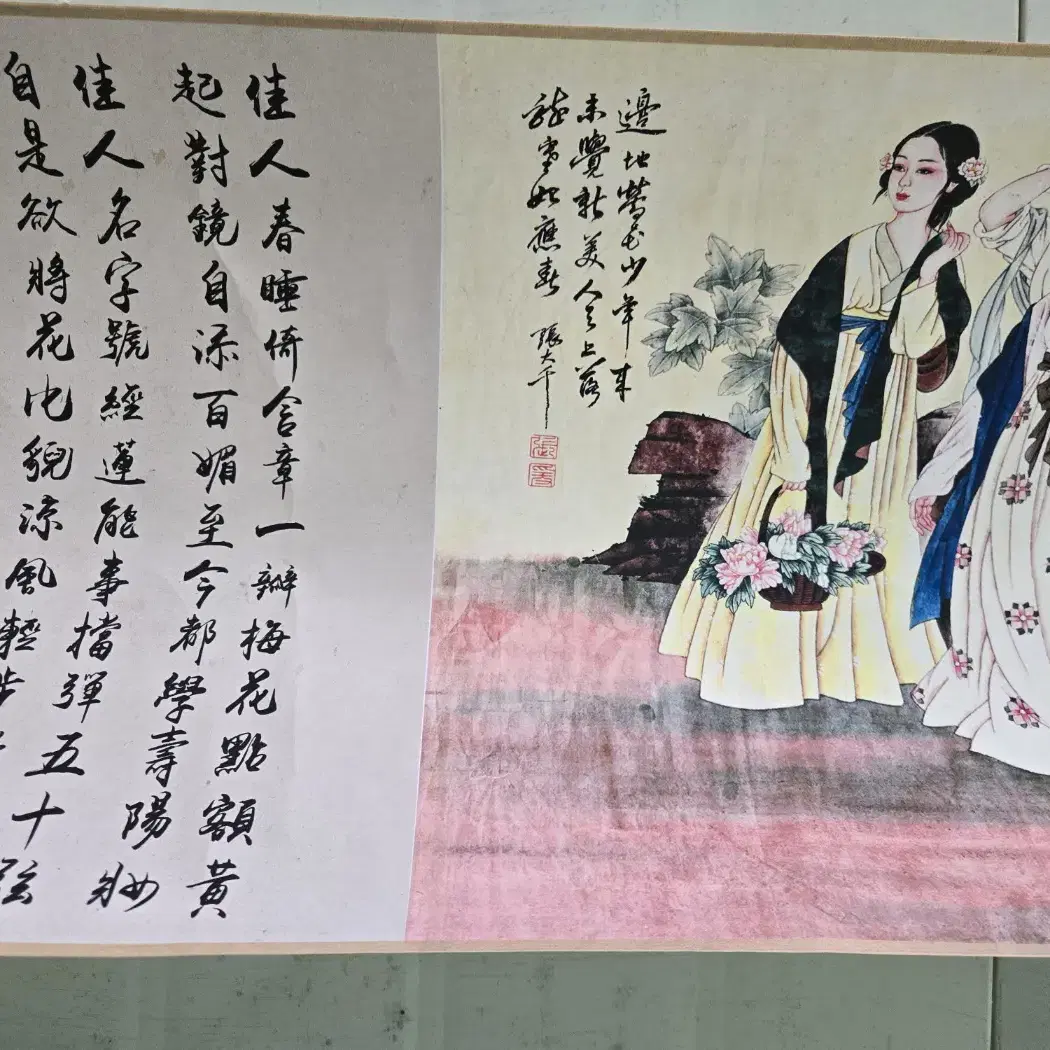 邊地鶯花少年來
未覺新美人天上落
龍塞始應春
張大千
張爰
佳人春睡倚含章一瓣梅花點額黃
起對鏡自添百媚至今都學壽陽妝
佳人名字號經蓮能事擋彈五十弦
自是欲將花比貌涼風輕步